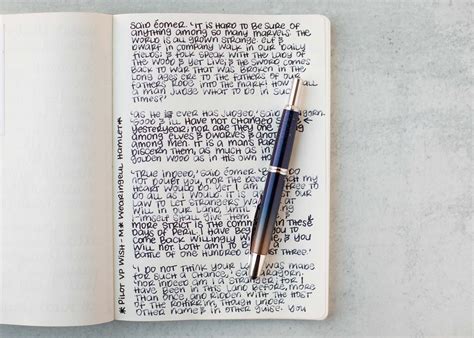 said Éomer. 'It is hard to be sure of
anything among so many marvels. The
world is all grown strange. Elf &
dwarf in company walk in our daily
fields; & folk speak with the Lady of
the Wood & yet live; & the sword comes
back to war that was broken in the
long ages ere the fathers of our
fathers rode into the Mark! How shall
a man judge what to do in such
times?'
'As he ever has judged,' said Aragorn.
'Good & ill have not changed since
yesteryear; nor are they one thing
among elves & dwarves & another
among men. It is a man's part to
discern them, as much in the
Golden Wood as in his own house.'
'True indeed,' said Éomer. 'But I do
not doubt you, nor the deed that my
heart would do. Yet I am not free to
do all as I would. It is against our
law to let strangers wander at
will in our land, until the king
himself shall give them leave, &
more strict is the command in these
days of peril. I have begged you to
come back willingly with me, & you
will not. Loth am I to begin a
battle of one hundred against three.'
'I do not think your law was made
for such a chance,' said Aragorn.
'Nor indeed am I a stranger; for I
have been in this land before, more
than once, and ridden with the host
of the Rohirrim, though under
other name & in other guise. You
*Pilot VP Wish - M* Wearingeul Hamlet*